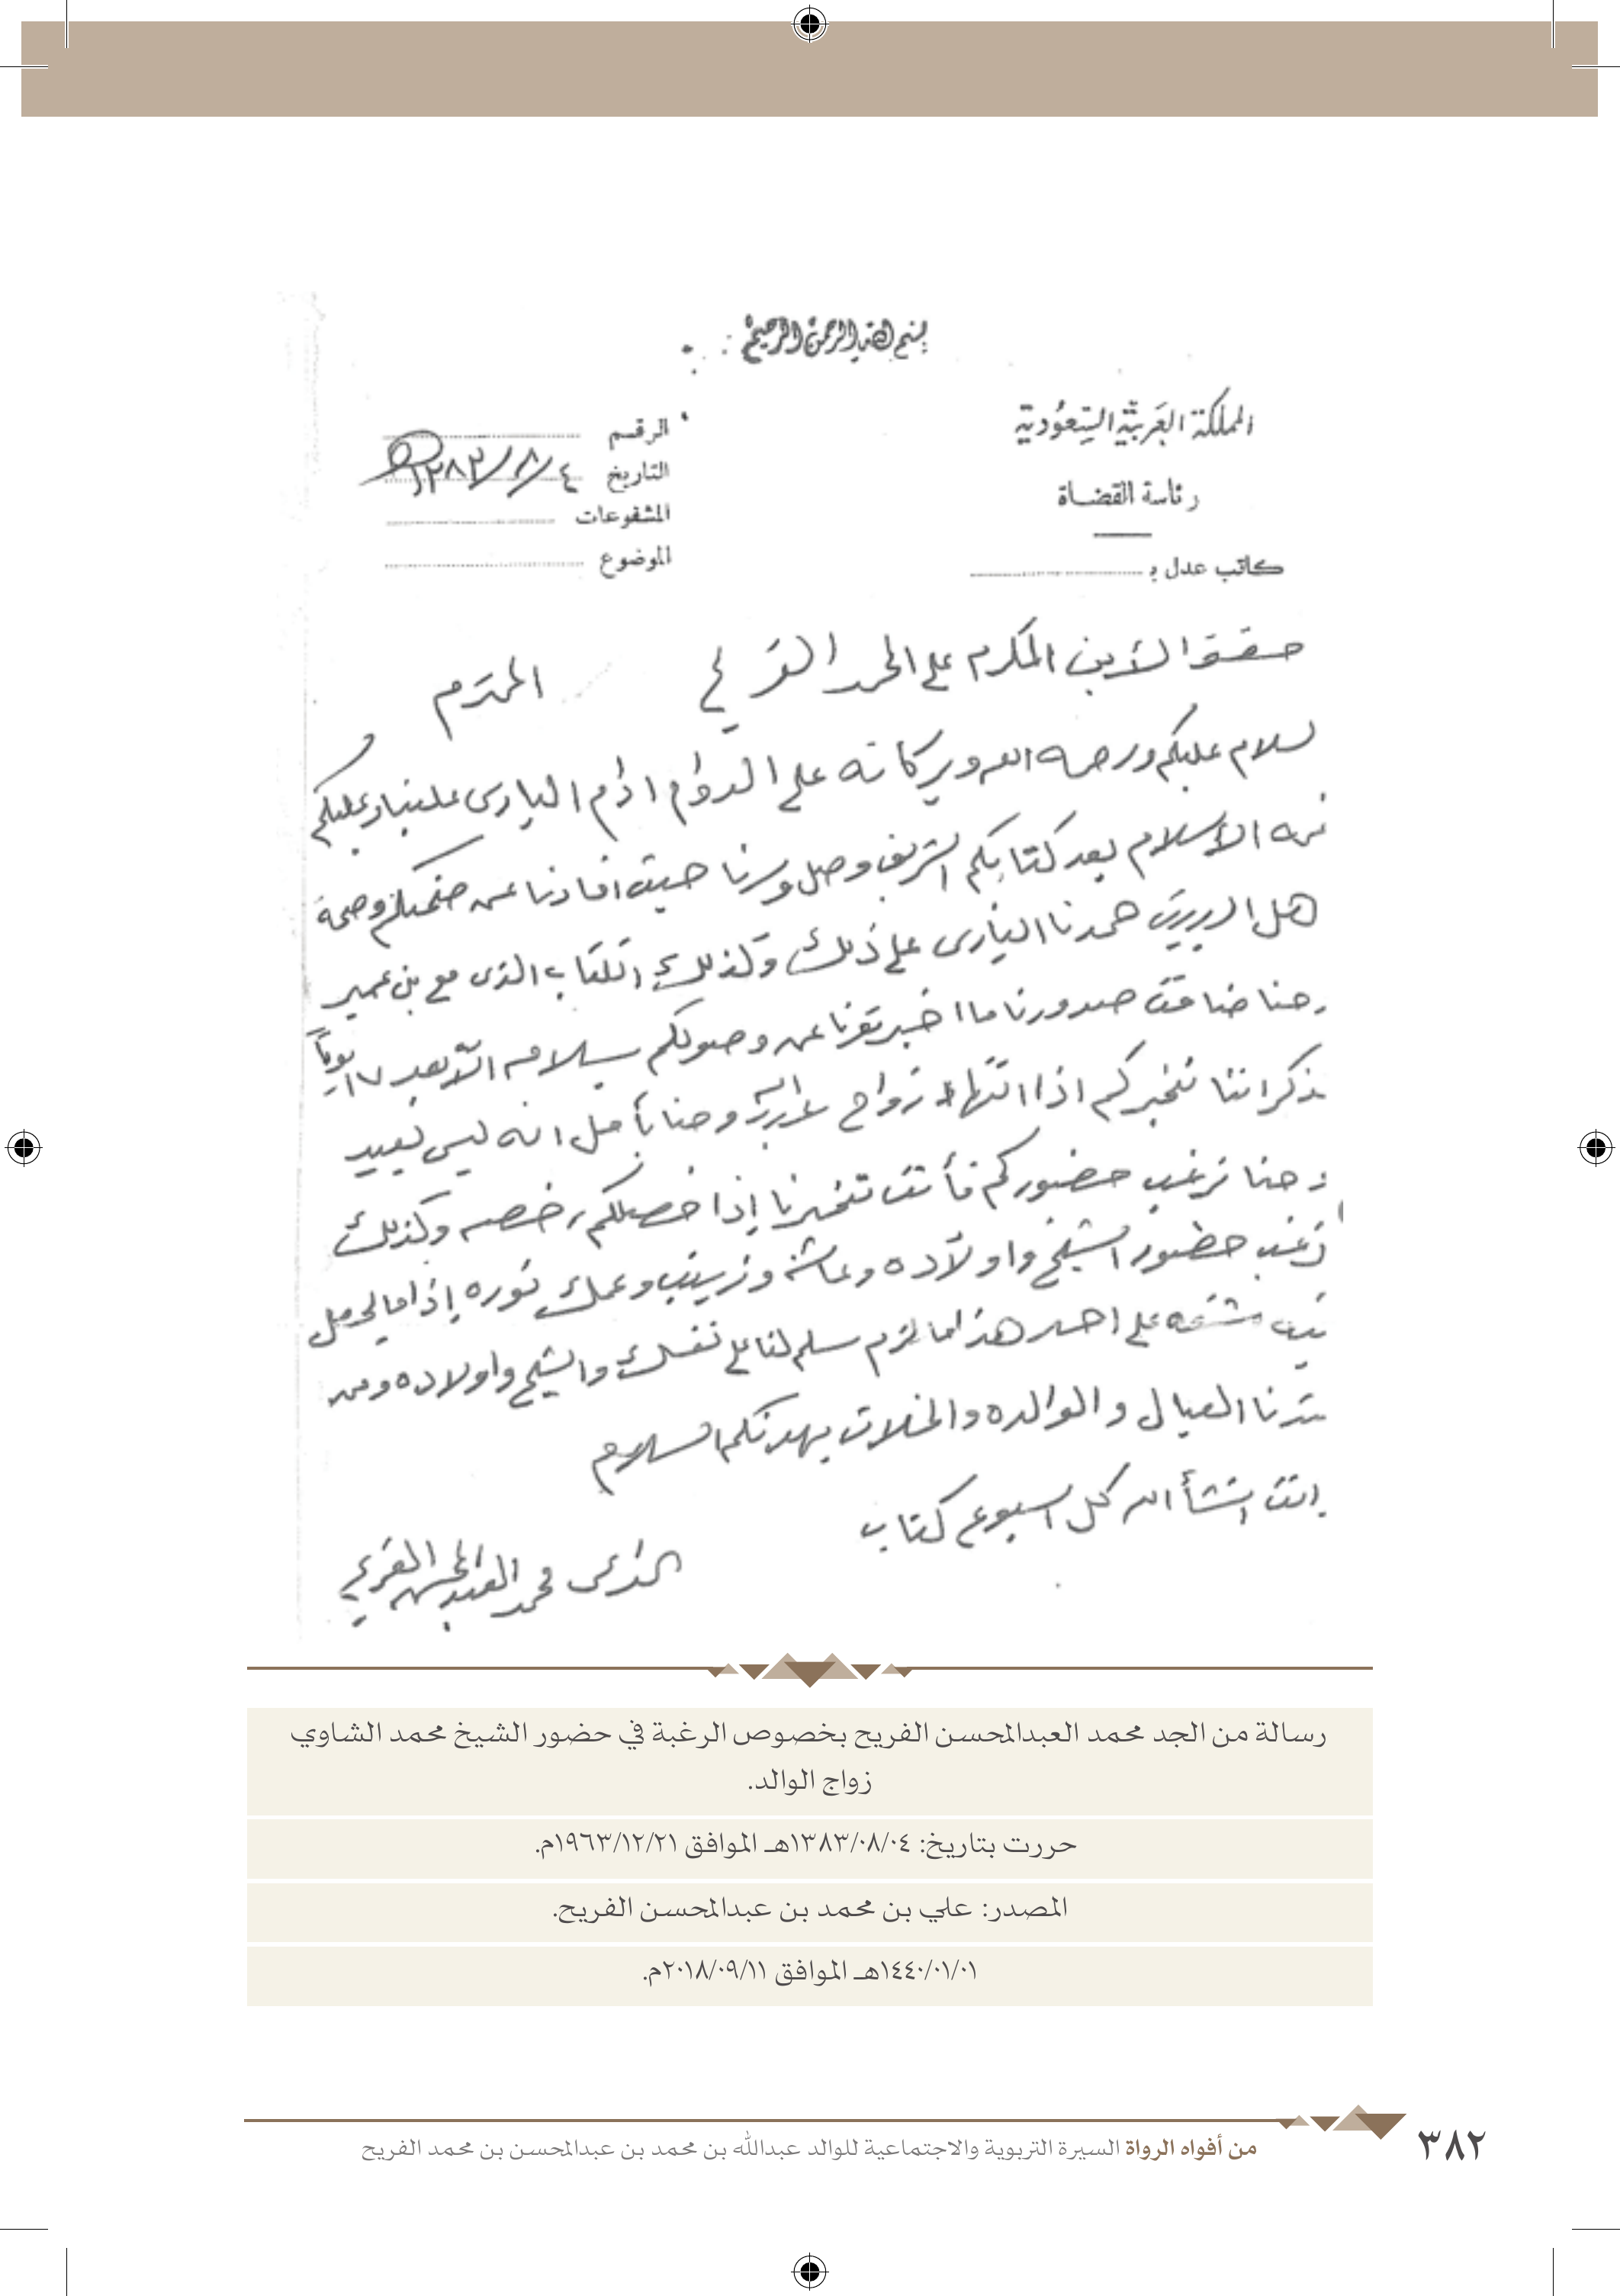 بسم الله الرحمن الرحيم
المملكة العربية السعودية
رئاسة القضاة
كاتب عدل بـ
الرقم
التاريخ ٤/٨/١٣٨٣هـ
المشفوعات
الموضوع
الأبن المكرم على الحمد المحترم
لسلام عليكم ورحمه الله وبركاته على الدوام ادام البارى علينا وعليكم
الأسلام بعد كتابكم الشريف وصل وسرنا حيث افادنا عن صحتكم وصحة
حمدنا البارى على ذلك وكذلك الكتاب الذى مع بن عمير
حنا ضاقت صدورنا ما اخبرتونا عن وصولكم بسلامه الآ بعد ١٧ يوماً
ذكر اننا نخبركم اذا انتهاء زواج وحنا نأمل انه ليس ببعيد
وحنا نرغب حضوركم فأنت تخبرنا إذا حصلكم رخصه وكذلك
نرغب حضور الشيخ واولآده وعائشة وزينب وعمك نوره إذا ما يحصل
مشقه على احد هذا ما لزم سلم لنا على نفسك والشيخ واولاده ومن
العيال والوالده والخلات يهدنكم السلام
انت انشأ الله كل اسبوع كتاب
محمد العبدالمحسن الفريح
رسالة من الجد محمد العبدالمحسن الفريح بخصوص الرغبة في حضور الشيخ محمد الشاوي
زواج الوالد.
حررت بتاريخ: ١٣٨٣/٠٨/٠٤هـ الموافق ١٩٦٣/١٢/٢١م.
المصدر: علي بن محمد بن عبدالمحسن الفريح.
١٤٤٠/٠١/٠١هـ الموافق ٢٠١٨/٠٩/١١م.
من أفواه الرواة السيرة التربوية والاجتماعية للوالد عبدالله بن محمد بن عبدالمحسن بن محمد الفريح
٣٨٢